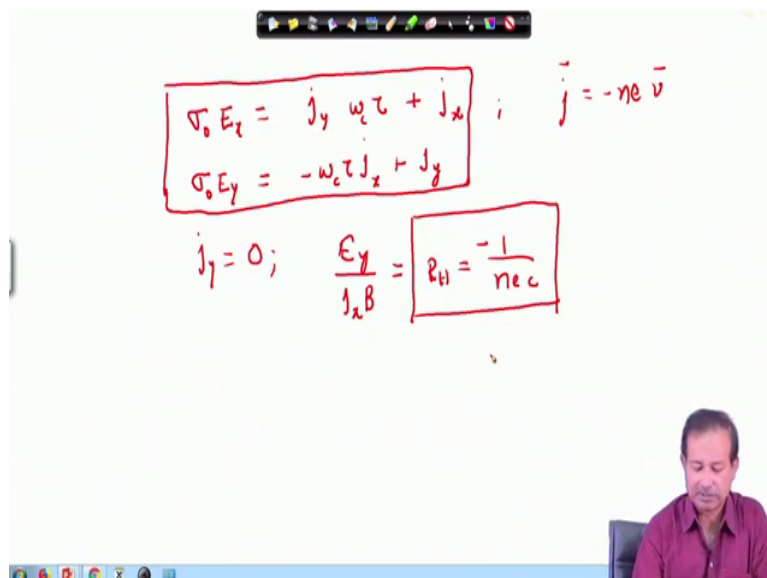 σ₀ Eₓ = j_y ω_c τ + jₓ ; j̄ = -ne v̄
σ₀ E_y = -ω_c τ jₓ + j_y
j_y = 0 ; E_y / jₓ B = R_H = -1 / nec